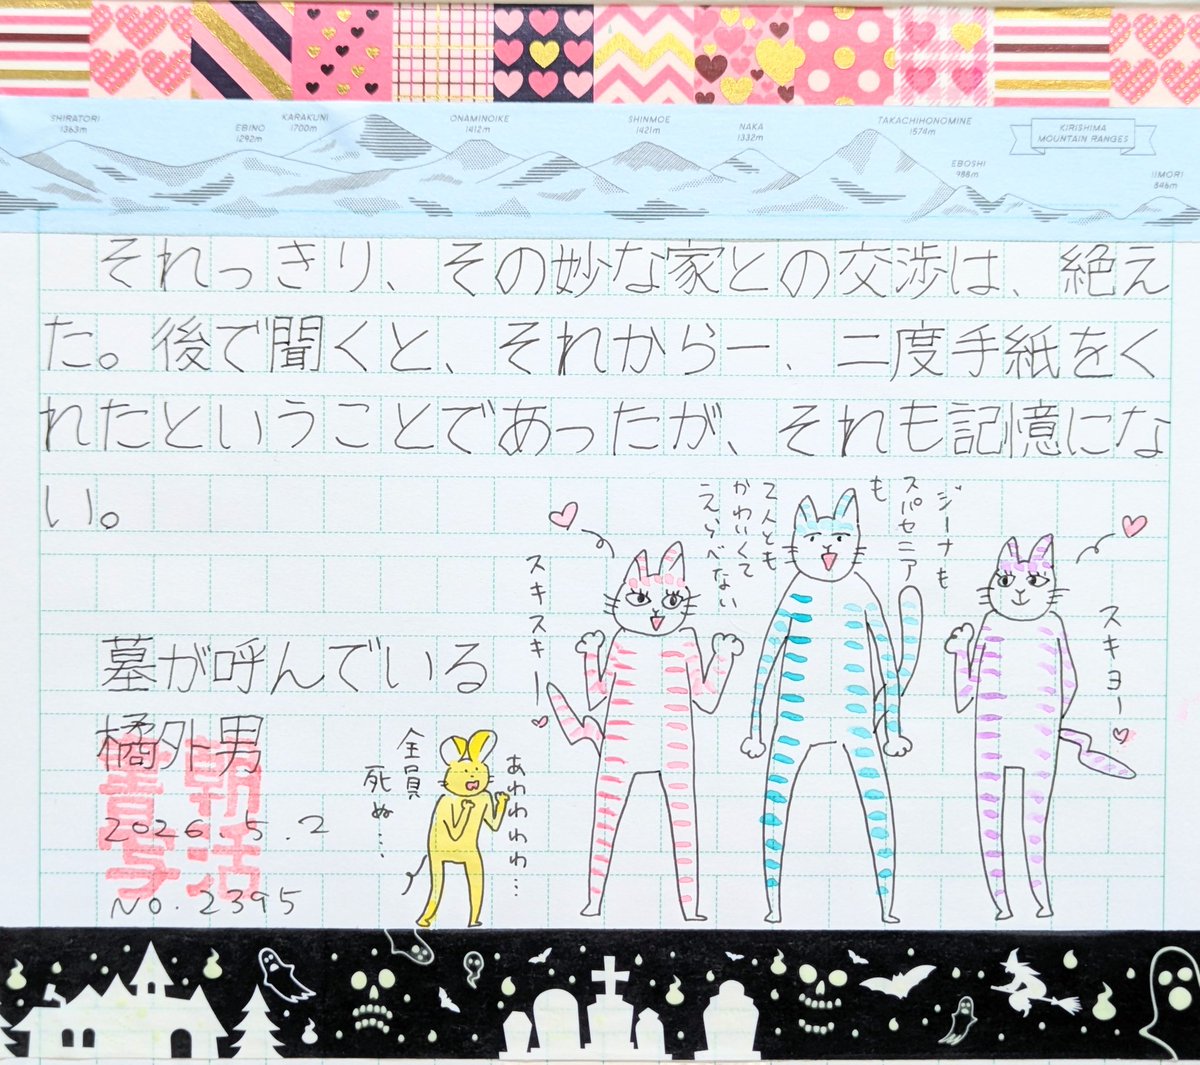 SHIRATORI
1363m
EBINO
1292m
KARAKUNI
1700m
ONAMINOIKE
1412m
SHINMOE
1421m
NAKA
1332m
TAKACHIHONOMINE
1574m
EBOSHI
988m
KIRISHIMA
MOUNTAIN RANGES
IIMORI
846m
それっきり、その妙な家との交渉は、絶え
た。後で聞くと、それから一、二度手紙をく
れたということであったが、それも記憶にな
い。
ジーナも
スパセニア
も
二人とも
かわいくて
えらべない
スキスキー
スキヨー
墓が呼んでいる
橘外男
朝活
書写
2026.5.2
No.2395
あわわわわ…
全員
死ぬ…